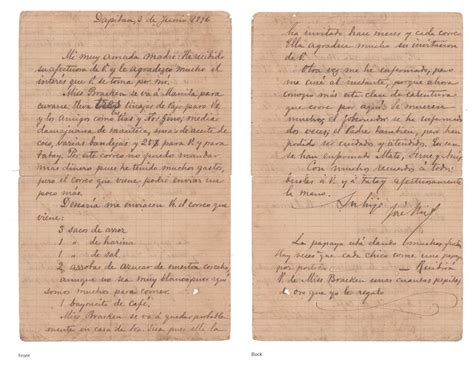 Dapitan, 3 de Junio 1896
Mi muy amada Madre: He recibido
su afectuosa de V. y le agradezco mucho el
interés que V. se toma por mí.
Miss Bracken se va á Manila para
curarse. Lleva tres tinajas de para V.
y los Amigos como Itas y Ñor Gino, media
damajuana de manteca, una de aceite de
coco, varias bandejas y para V. y para
Tatay. Por este correo no puedo mandar
más dinero pues he tenido muchos gastos,
pero el correo que viene podré enviar un
poco más.
Desearía me enviasen V. el correo que
viene:
3 sacos de arroz
1 " de harina
1 " de sal
2 arrobas de azucar de nuestra cosecha
aunque no sea muy blanco pues que
somos muchos para comer.
1 bayoncito de café
Miss Bracken se va á quedar probable
mente en casa de Sra. pues ella la
ha invitado hace meses y cada correo
Ella agradece mucho su invitacion
de V.
Otra vez me he enfermado, pero
me curé al mediante, pues que ahora
conozco más esta clase de calentura
que corre por aquí. Se mueren
muchos; el Gobernador se ha enfermado
dos veces, el Padre tambien, pero han
podido ser cuidados y atendidos. En casa
se han enfermado
Con muchos recuerdos á todos
besoles á V. y á Tatay afectuosamente
la mano.
Su hijo
José Rizal
La papaya está dando muchas frutas
Hay veces que cada chico come una papaya
por postre. — Reciba
V. de Miss Bracken unas cuantas
oro que yo le regalo
Front
Back